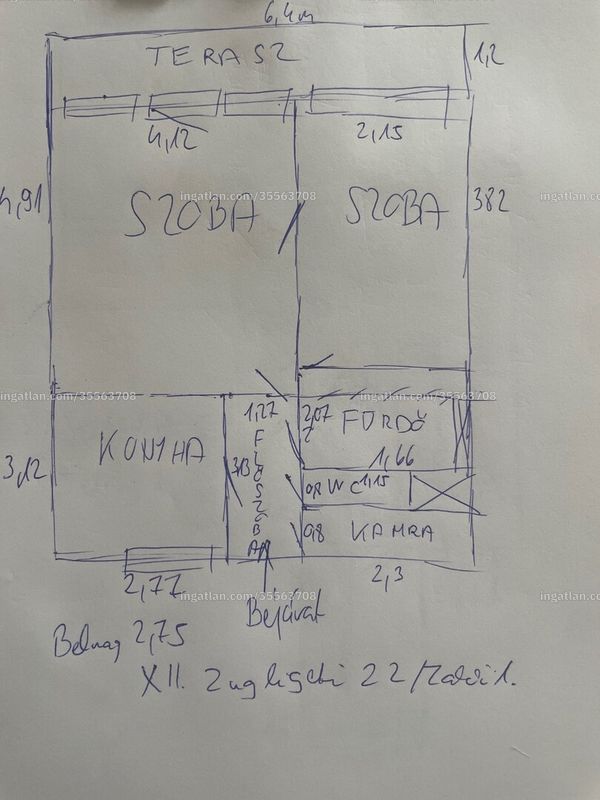 6,4m
TERASZ
1,2
4,12
2,15
4,91
SZOBA
SZOBA
382
ingatlan.com/35563708
ingatlan.com/35563708
ingatlan.com/35563708
ingatlan.com/35563708
1,27
2,07
FÜRDŐ
KONYHA
ELŐSZOBA
1,66
3,12
313
0,8 WC 1,15
0,8
KAMRA
2,77
2,3
ingatlan.com/35563708
Bejárat
Belmag 2,75
XII. Zugligeti 22
ingatlan.com/35563708